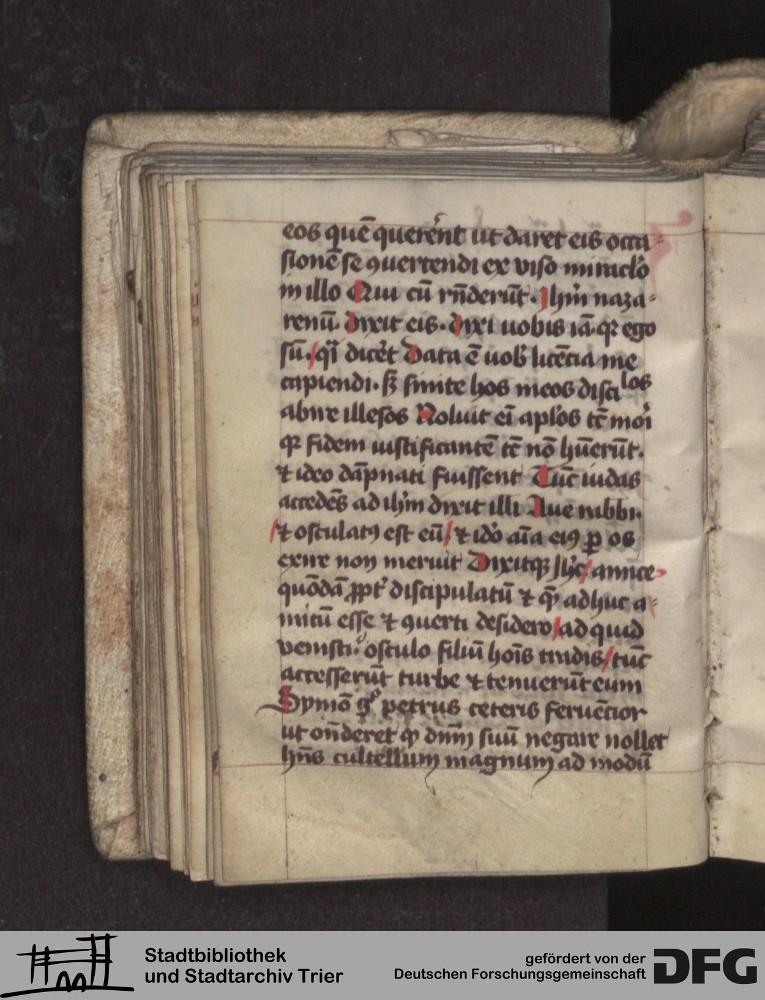 eos quē querēnt ut daret eis occa-
sionē se ꝯuertendi ex viso miraclo
in illo Qui cū rn̄derūt. Jhm̄ naza-
renū. dixit eis. dixi uobis iā. qꝛ ego
sū. / qi dicēt Data ē uob licēcia me
capiendi. sꝫ sinite hos meos discilos
abire illesos Noluit ei aplos tc̄ moi
qꝛ fidem iustificantē tc̄ nō huerūt.
⁊ ideo dāpnati fuissent Tūc iudas
accedēs ad ihm̄ dixit illi Aue rabbi.
/ ⁊ osculatꝰ est eū / ⁊ ido aīa eiꝰ ꝑ os
exire non meruit Dixitqꝫ ihc / amice
quōdā ꝓpt discipulatū ⁊ qꝛ adhuc a-
micū esse ⁊ ꝯuerti desidero / ad quid
venisti. osculo filiū hoīs tradis / tūc
accesserūt turbe ⁊ tenuerūt eum
Symō gͦ petrus ceteris feruēcior
ut on̄deret ꝙ dnm̄ suū negare nollet
hn̄s cultellum magnum ad modū
Stadtbibliothek
und Stadtarchiv Trier
gefördert von der
Deutschen Forschungsgemeinschaft
DFG